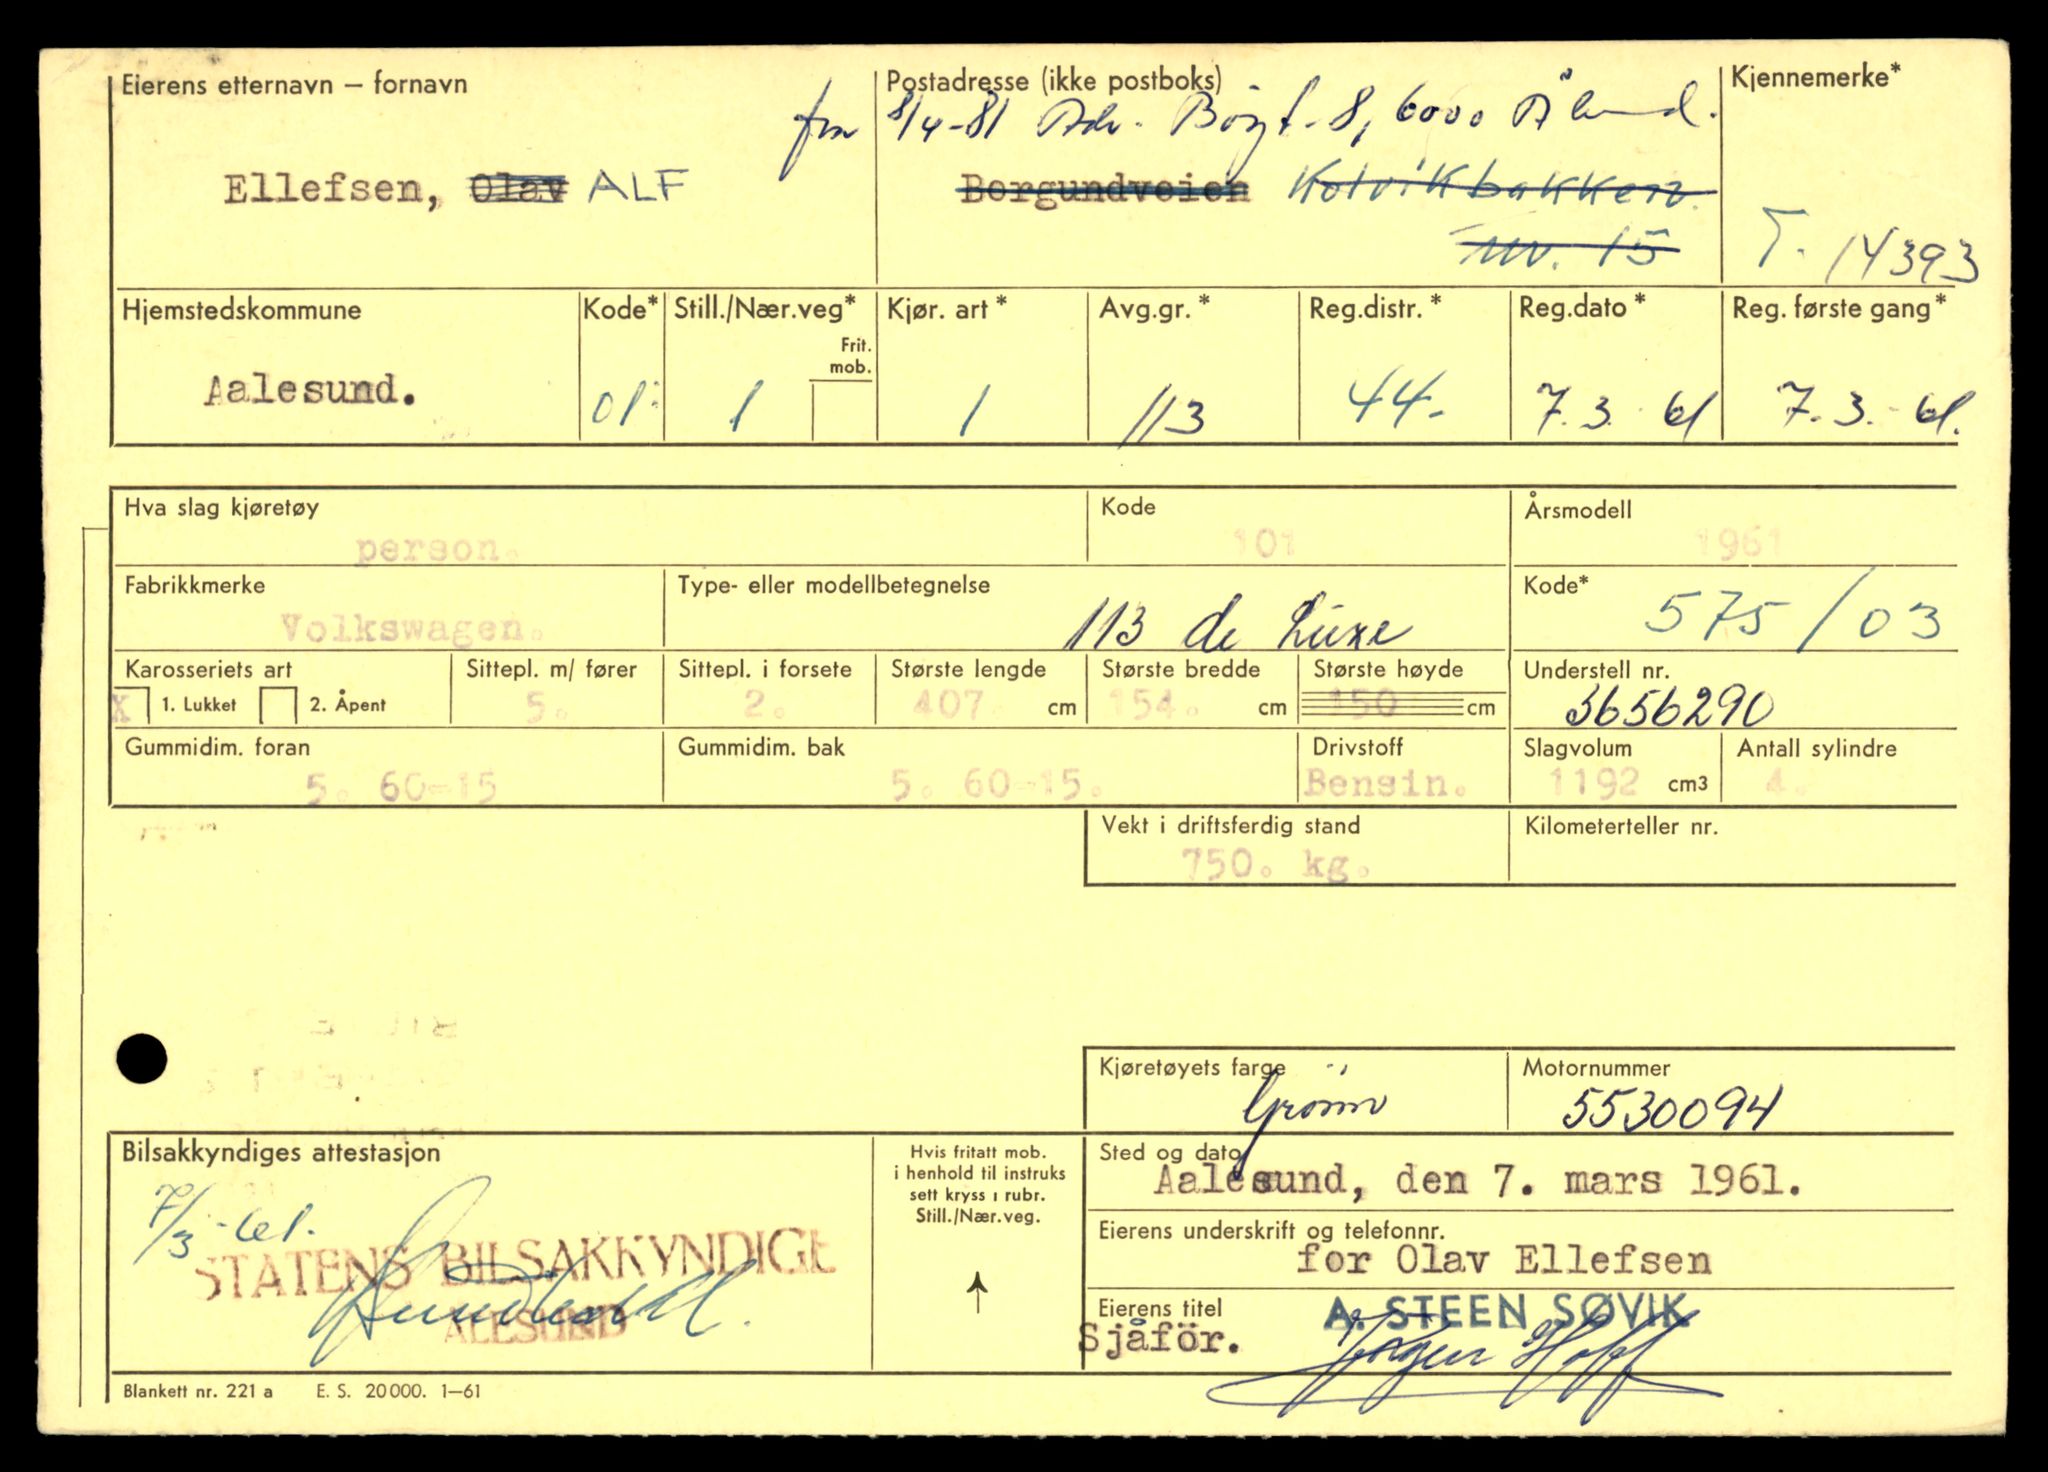 Eierens etternavn – fornavn
Postadresse (ikke postboks)
Kjennemerke*
8/4-81 Adr. 8, 6000
Ellefsen, Olav ALF
Borgundveien Kolvikbakken
nv. 15
T. 14393
Hjemstedskommune
Kode*
Still./Nær.veg*
Frit. mob.
Kjør. art *
Avg.gr. *
Reg.distr. *
Reg.dato *
Reg. første gang*
Aalesund.
01
1
1
113
44.
7.3.61
7.3.61.
Hva slag kjøretøy
person.
Kode
101
Årsmodell
1961
Fabrikkmerke
Volkswagen.
Type- eller modellbetegnelse
113 de Luxe
Kode*
575/03
Karosseriets art
X 1. Lukket 2. Åpent
Sittepl. m/ fører
5.
Sittepl. i forsete
2.
Største lengde
407 cm
Største bredde
154. cm
Største høyde
150 cm
Understell nr.
3656290
Gummidim. foran
5. 60-15
Gummidim. bak
5. 60-15.
Drivstoff
Bensin.
Slagvolum
1192 cm3
Antall sylindre
4.
Vekt i driftsferdig stand
750. kg.
Kilometerteller nr.
Kjøretøyets farge
Grönn
Motornummer
5530094
Bilsakkyndiges attestasjon
7/3-61.
STATENS BILSAKKYNDIGE
ÅLESUND
Hvis fritatt mob.
i henhold til instruks
sett kryss i rubr.
Still./Nær.veg.
Sted og dato
Aalesund, den 7. mars 1961.
Eierens underskrift og telefonnr.
for Olav Ellefsen
Eierens titel
A. STEEN SØVIK
Sjåför.
Blankett nr. 221 a E. S. 20000. 1–61